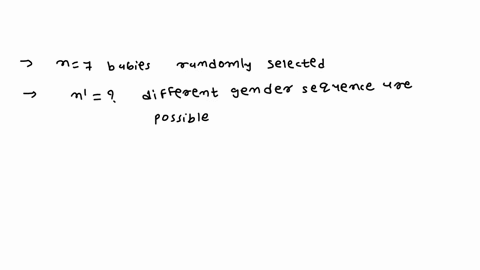 → n=7 babies randomly selected
→ n'=? different gender sequence are
possible